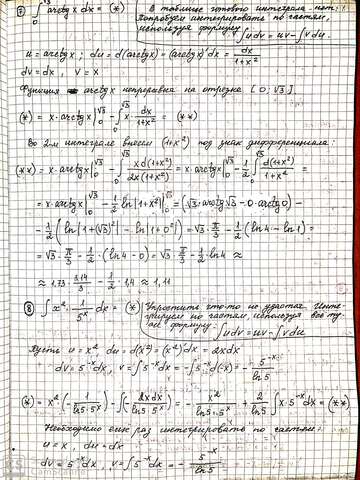 ⑦ ∫₀^√3 arctg x dx = (*) В таблице готового интеграла нет.
Попробуем интегрировать по частям,
используя формулу ∫u dv = uv - ∫v du.
u = arctg x; du = d(arctg x) = (arctg x)' dx = dx/(1+x²)
dv = dx, v = x
Функция arctg x непрерывна на отрезке [0; √3].
(*) = x·arctg x |₀^√3 - ∫₀^√3 x· dx/(1+x²) = (**)
Во 2-м интеграле внесем (1+x²) под знак дифференциала:
(**) = x·arctg x |₀^√3 - ∫₀^√3 x d(1+x²)/(2x(1+x²)) = x·arctg x |₀^√3 - 1/2 ∫₀^√3 d(1+x²)/(1+x²) =
= x·arctg x |₀^√3 - 1/2 ln|1+x²| |₀^√3 = (√3·arctg √3 - 0·arctg 0) -
- 1/2 (ln|1+(√3)²| - ln|1+0²|) = √3·π/3 - 1/2 (ln 4 - ln 1) =
= √3·π/3 - 1/2·(ln 4 - 0) = √3·π/3 - 1/2·ln 4 ≈
≈ 1,73· 3,14/3 - 1/2 · 1,4 ≈ 1,11
⑧ ∫ x²· 1/5ˣ dx = (*) Упростить что-то не удастся. Инте-
грируем по частям, используя
формулу: ∫u dv = uv - ∫v du
Пусть u = x² du = d(x²) = (x²)' dx = 2x dx
dv = 5⁻ˣ dx, v = ∫5⁻ˣ dx = -∫5⁻ˣ d(-x) = - 5⁻ˣ/ln 5
(*) = x²·(- 1/(ln 5·5ˣ)) - ∫(- 2x dx/(ln 5·5ˣ)) = - x²/(ln 5·5ˣ) + 2/ln 5 ∫x·5⁻ˣ dx = (**)
Необходимо еще раз интегрировать по частям:
u = x, du = dx
dv = 5⁻ˣ dx, v = ∫5⁻ˣ dx = - 5⁻ˣ/ln 5